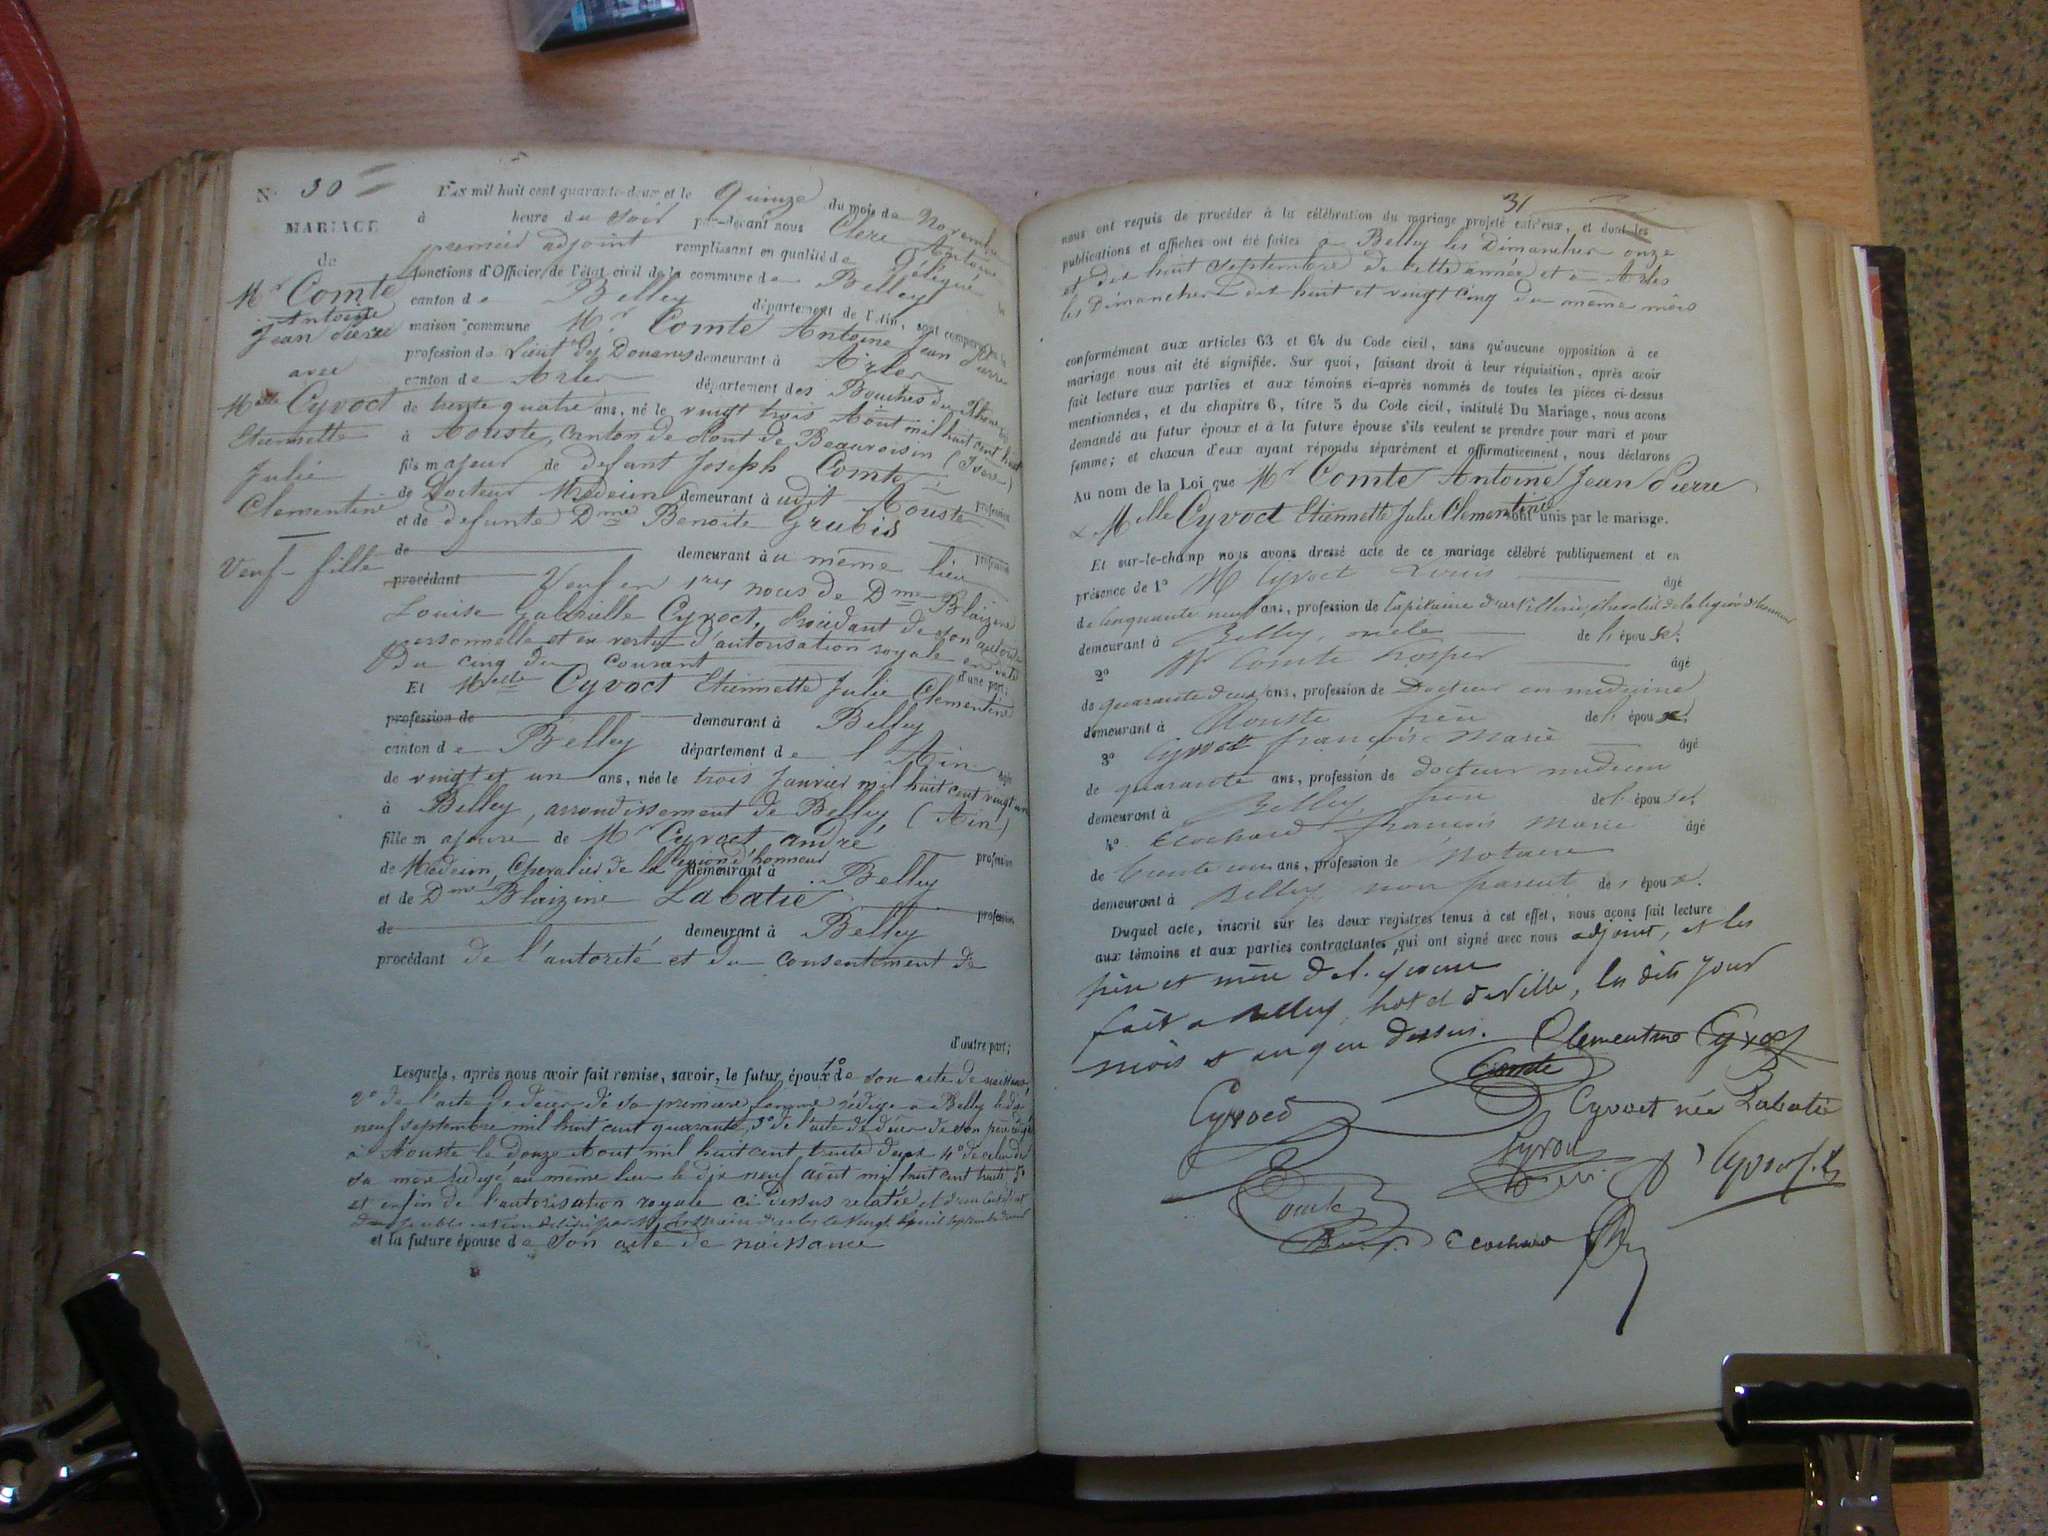 N° 30
MARIAGE
de
Mr Comte
Antoine
Jean Pierre
avec
Melle Cyvoct
Etiennette
Julie
Clementine
Veuf - fille
L'an mil huit cent quarante-deux et le quinze du mois de Novembre
à heure du soir par-devant nous Clerc Antoine
premier adjoint remplissant en qualité de délégué
fonctions d'Officier de l'état civil de la commune de Belley
canton de Belley département de l'Ain, sont comparus
maison commune Mr Comte Antoine Jean Pierre
profession de Lieut des Douanes demeurant à Arles
canton de Arles département des Bouches du Rhône
de trente quatre ans, né le vingt trois Aout mil huit cent huit
à Aouste, canton de Pont de Beauvoisin (Isère)
fils majeur de defunt Joseph Comte profession
de Docteur Médecin demeurant à udit Aouste
et de defunte Dme Benoite Grubis profession
de demeurant à u même lieu
procédant Veuf en 1res noces de Dme Blaizine
Louise Gabrielle Cyvoct, procédant de son autorité
personnelle et en vertu d'autorisation royale en date
du cinq du courant
d'une part;
Et Melle Cyvoct Etiennette Julie Clementine
profession de demeurant à Belley
canton de Belley département de l'Ain âgée
de vingt et un ans, née le trois Janvier mil huit cent vingt un
à Belley, arrondissement de Belley, (Ain)
fille majeure de Mr Cyvoct andré profession
de Médecin, Chevalier de la légion d'honneur demeurant à Belley
et de Dme Blaizine Labatie profession
de demeurant à Belley
procédant de l'autorité et du consentement de
d'autre part;
Lesquels, après nous avoir fait remise, savoir, le futur époux 1° de son acte de naissance
2° de l'acte de décès de sa première femme rédigé à Belley le dix
neuf septembre mil huit cent quarante, 3° de l'acte de décès de son père rédigé
à Aouste le douze Aout mil huit cent trente deux 4° de celui de
sa mère rédigé au même lieu le dix neuf août mil huit cent trente 5°
et enfin de l'autorisation royale ci dessus relatée et d'un certificat
de publication
et la future épouse de son acte de naissance
31
nous ont requis de procéder à la célébration du mariage projeté entr'eux, et dont les
publications et affiches ont été faites à Belley les Dimanches onze
et dix huit septembre de cette année et à Arles
les Dimanches dix huit et vingt cinq du même mois
conformément aux articles 63 et 64 du Code civil, sans qu'aucune opposition à ce
mariage nous ait été signifiée. Sur quoi, faisant droit à leur réquisition, après avoir
fait lecture aux parties et aux témoins ci-après nommés de toutes les pièces ci-dessus
mentionnées, et du chapitre 6, titre 5 du Code civil, intitulé Du Mariage, nous avons
demandé au futur époux et à la future épouse s'ils veulent se prendre pour mari et pour
femme; et chacun d'eux ayant répondu séparément et affirmativement, nous déclarons
Au nom de la Loi que Mr Comte Antoine Jean Pierre
& Melle Cyvoct Etiennette Julie Clementine sont unis par le mariage.
Et sur-le-champ nous avons dressé acte de ce mariage célébré publiquement et en
présence de 1° M Cyvoct Louis âgé
de cinquante neuf ans, profession de Capitaine d'artillerie, chevalier de la légion d'honneur
demeurant à Belley, oncle de l'épouse.
2° Mr Comte Prosper âgé
de quarante deux ans, profession de Docteur en médecine
demeurant à Aouste frère de l'époux.
3° Cyvoct françois Marie âgé
de quarante ans, profession de docteur médecin
demeurant à Belley, frère de l'épouse.
4° Ecochard francois Marie âgé
de trente ans, profession de Notaire
demeurant à Belley non parent des époux.
Duquel acte, inscrit sur les deux registres tenus à cet effet, nous avons fait lecture
aux témoins et aux parties contractantes qui ont signé avec nous adjoint, et les
père et mère de l'épouse
fait à Belley, hotel de Ville, les dits jour
mois et an que dessus. Clementine Cyvoct
Comte
Cyvoct Cyvoct née Labatie
Cyvoct
Comte
Ecochard